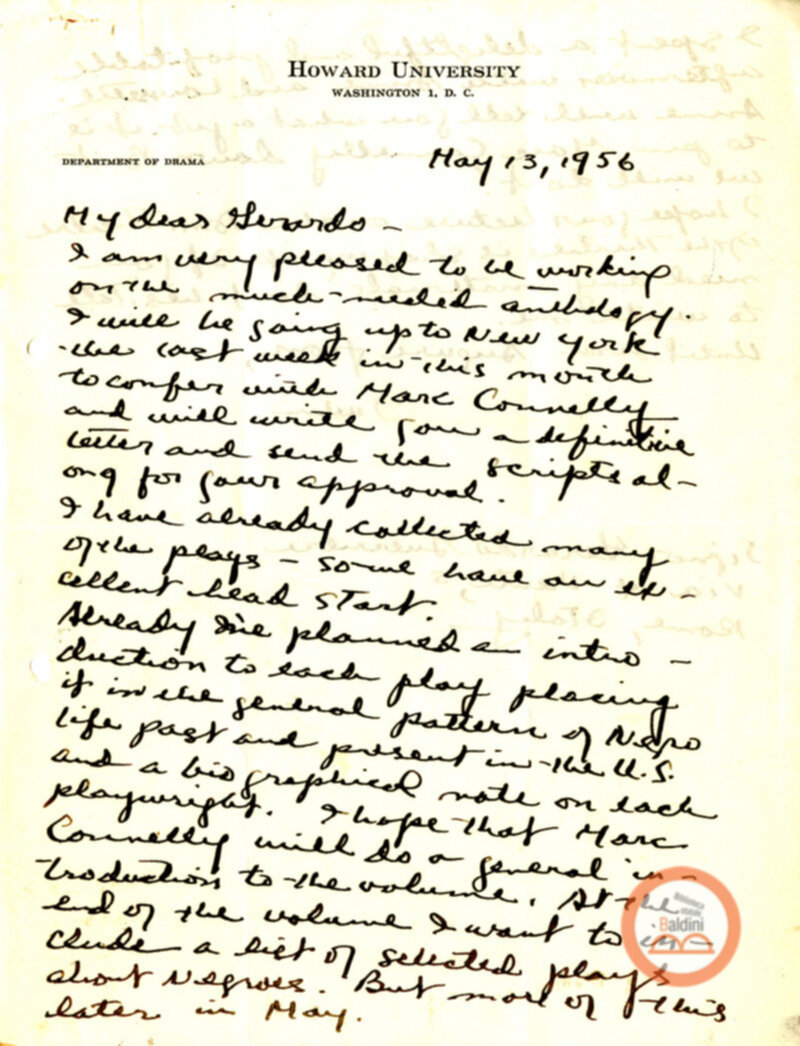 HOWARD UNIVERSITY
WASHINGTON 1, D. C.
DEPARTMENT OF DRAMA
May 13, 1956
My dear Gerardo –
I am very pleased to be working
on the much-needed anthology.
I will be going up to New York
the last week in this month
to confer with Marc Connelly
and will write you a definitive
letter and send the scripts al-
ong for your approval.
I have already collected many
of the plays – so we have an ex-
cellent head start.
Already I've planned an intro-
duction to each play placing
it in the general pattern of Negro
life past and present in the U.S.
and a biographical note on each
playwright. I hope that Marc
Connelly will do a general in-
troduction to the volume. At the
end of the volume I want to in-
clude a list of selected plays
about Negroes. But more of this
later in May.
Biblioteca
statale
Baldini